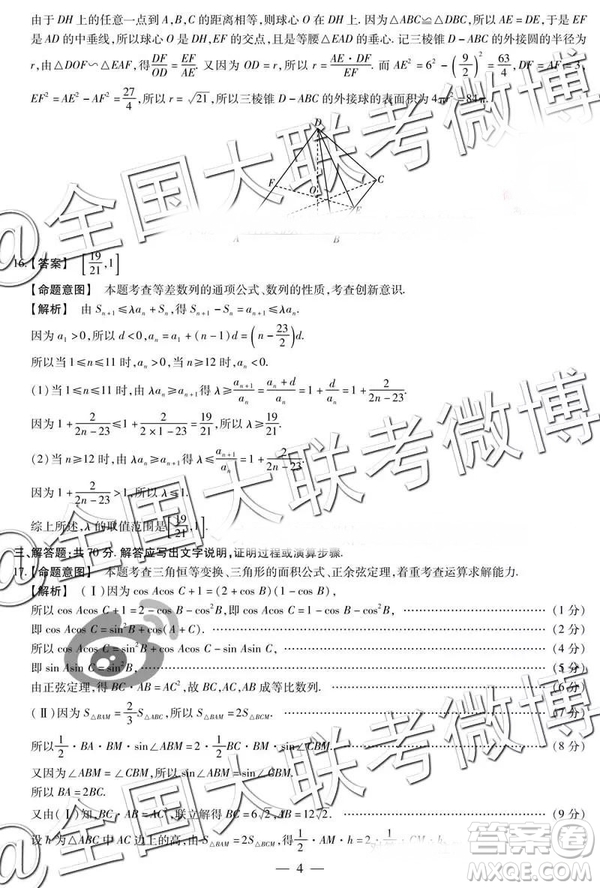 由于 DH 上的任意一点到 A,B,C 的距离相等,则球心 O 在 DH 上. 因为△ABC≌△DBC,所以 AE=DE,于是 EF
是 AD 的中垂线,所以球心 O 是 DH,EF 的交点,且是等腰△EAD 的垂心. 记三棱锥 D-ABC 的外接圆的半径为
r,由△DOF∽△EAF,得 DF/OD = EF/AE. 又因为 OD=r,所以 r = AE·DF/EF. 而 AE²=6²-(9/2)²=63/4,DF=AF=3,
EF²=AE²-AF²=27/4,所以 r=√21,所以三棱锥 D-ABC 的外接球的表面积为 4πr²=84π.
D
F
C
O
E
A B
16.【答案】 [19/21,1]
【命题意图】 本题考查等差数列的通项公式、数列的性质,考查创新意识.
【解析】 由 Sₙ₊₁≤λaₙ+Sₙ,得 Sₙ₊₁-Sₙ=aₙ₊₁≤λaₙ.
因为 a₁>0,所以 d<0,aₙ=a₁+(n-1)d=(n-23/2)d.
所以当 1≤n≤11 时,aₙ>0,当 n≥12 时,aₙ<0.
(1)当 1≤n≤11 时,由 aₙ₊₁≤λaₙ 得 λ≥aₙ₊₁/aₙ=(aₙ+d)/aₙ=1+d/aₙ=1+2/(2n-23).
因为 1+2/(2n-23)≤1+2/(2×1-23)=19/21,所以 λ≥19/21.
(2)当 n≥12 时,由 aₙ₊₁≤λaₙ 得 λ≤aₙ₊₁/aₙ=1+2/(2n-23).
因为 1+2/(2n-23)>1,所以 λ≤1.
综上所述,λ 的取值范围是[19/21,1].
三、解答题:共 70 分. 解答应写出文字说明,证明过程或演算步骤.
17.【命题意图】 本题考查三角恒等变换、三角形的面积公式、正余弦定理,着重考查运算求解能力.
【解析】 (Ⅰ)因为 cos Acos C+1=(2+cos B)(1-cos B),
所以 cos Acos C+1=2-cos B-cos²B,即 cos Acos C=1-cos B-cos²B, (1 分)
即 cos Acos C=sin²B+cos(A+C). (2 分)
所以 cos Acos C=sin²B+cos Acos C-sin Asin C, (4 分)
即 sin Asin C=sin²B. (5 分)
由正弦定理,得 BC·AB=AC²,故 BC,AC,AB 成等比数列. (6 分)
(Ⅱ)因为 S△BAM=2/3 S△ABC,所以 S△BAM=2S△BCM, (7 分)
所以 1/2·BA·BM·sin∠ABM=2·1/2·BC·BM·sin∠CBM. (8 分)
又因为∠ABM=∠CBM,所以 sin∠ABM=sin∠CBM,
所以 BA=2BC.
又由(Ⅰ)知,BC·AB=AC²,联立解得 BC=6√2,AB=12√2. (9 分)
设 h 为△ABC 中 AC 边上的高,由 S△BAM=2S△BCM,得 1/2·AM·h=2·1/2·CM·h,
— 4 —
@全国大联考微博
@全国大联考微博
@全国大联考微博
答案圈
MXQE.COM